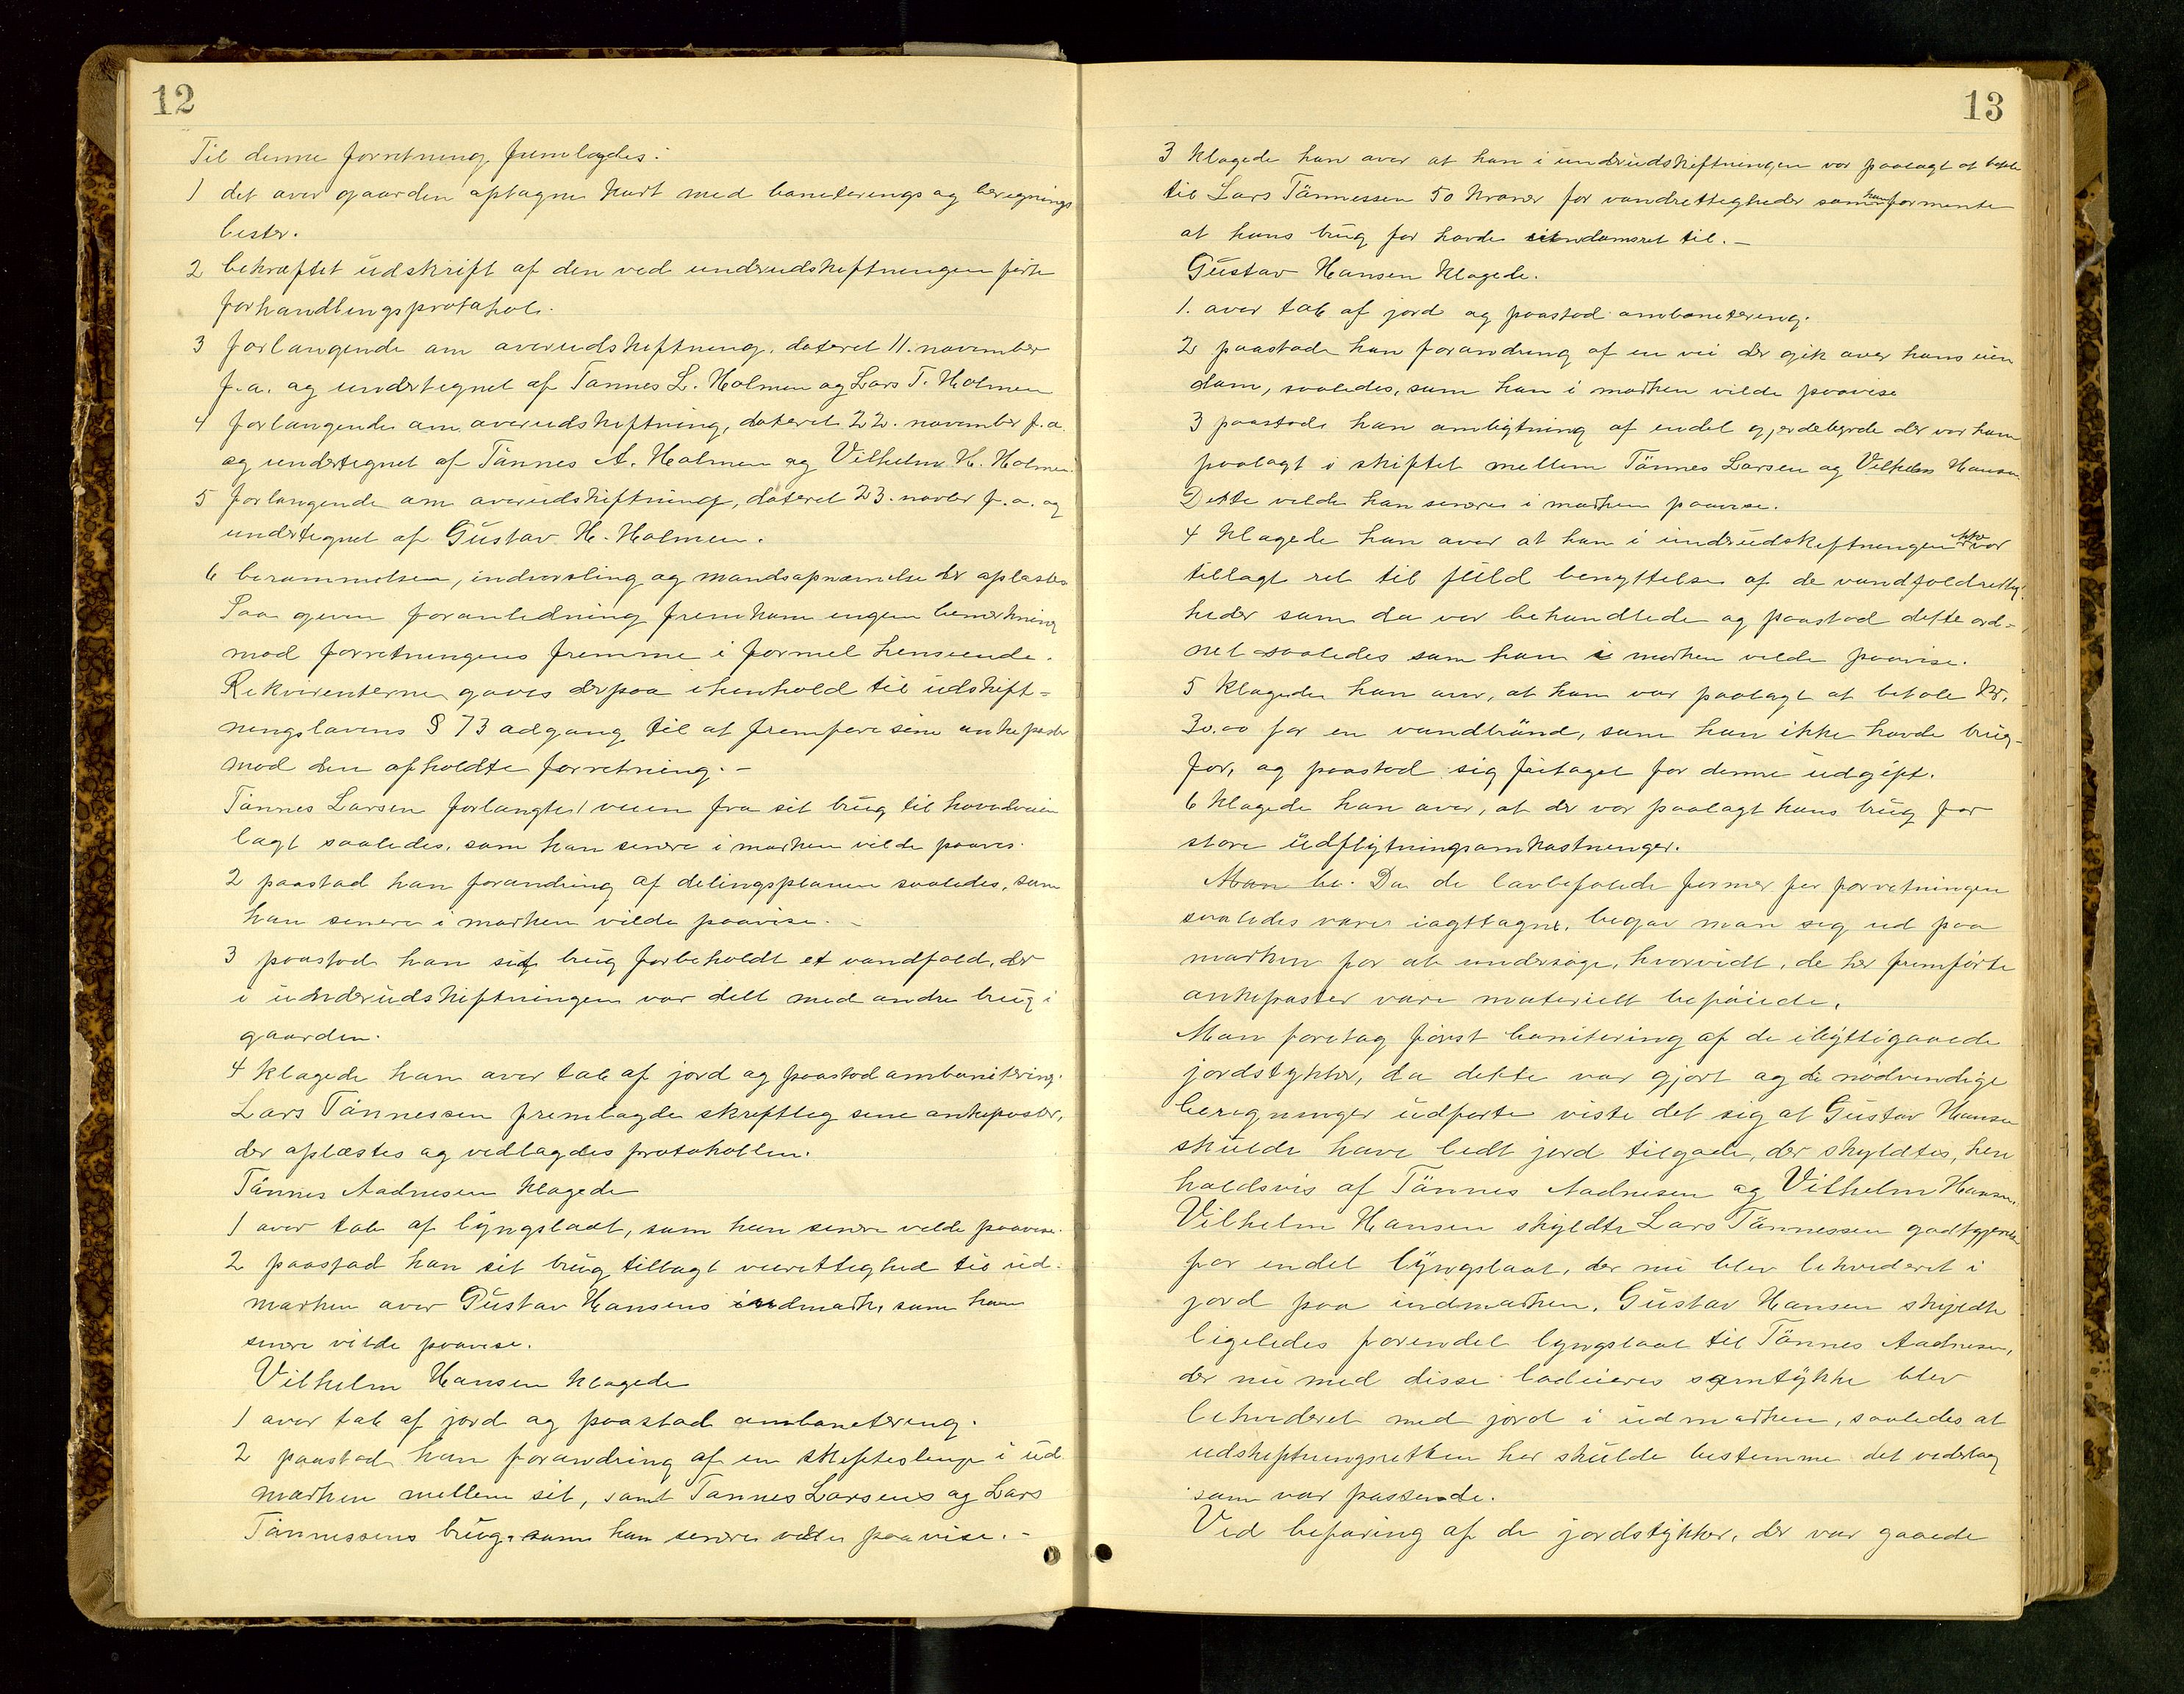 12
Til denne forretning fremlagdes:
1 det over gaarden optagne kart med boniterings og beregnings
lister.
2 bekræftet udskrift af den ved underudskiftningen førte
forhandlingsprotokol.
3 forlangende om overudskiftning, dateret 11. november
f.a. og undertegnet af Tønnes L. Holmen og Lars T. Holmen
4 forlangende om overudskiftning, dateret 22. november f.a.
og undertegnet af Tønnes A. Holmen og Vilhelm H. Holmen.
5 forlangende om overudskiftning, dateret 23. novbr f.a. og
undertegnet af Gustav H. Holmen.
6 berammelsen, indvarsling og mandsopnævnelse der oplæstes
Paa given foranledning fremkom ingen bemerkning
mod forretningens fremme i formel henseende.
Rekvirenterne gaves derpaa i henhold til udskift-
ningslovens § 73 adgang til at fremføre sine ankeposter
mod den afholdte forretning. -
Tønnes Larsen forlangte 1 veien fra sit brug til hovedveien
lagt saaledes, som han senere i marken vilde paavise.
2 paastod han forandring af delingsplanen saaledes, som
han senere i marken vilde paavise. -
3 paastod han sit brug forbeholdt et vandfald, der
i underudskiftningen var delt med andre brug i
gaarden.
4 klagede han over tab af jord og paastod ombonitering.
Lars Tønnessen fremlagde skriftlig sine ankeposter,
der oplæstes og vedlagdes protokollen.
Tønnes Aadnesen klagede
1 over tab af lyngslaat, som han senere vilde paavise.
2 paastod han sit brug tillagt veirettighed til ud-
marken over Gustav Hansens indmark, som han
senere vilde paavise.
Vilhelm Hansen klagede
1 over tab af jord og paastod ombonitering.
2 paastod han forandring af en skifteslinje i ud
marken mellem sit, samt Tønnes Larsens og Lars
Tønnessens brug, som han senere vilde paavise. -
13
3 klagede han over at han i underudskiftningen var paalagt at betale
til Lars Tønnessen 50 kroner for vandrettigheder som han formente
at hans brug før havde eiendomsret til. -
Gustav Hansen klagede.
1. over tab af jord og paastod ombonitering.
2 paastode han forandring af en vei der gik over hans eien
dom, saaledes, som han i marken vilde paavise
3 paastode han omligtning af endel gjerdebyrde der var ham
paalagt i skiftet mellem Tønnes Larsen og Vilhelm Hansen.
Dette vilde han senere i marken paavise.
4 klagede han over at han i underudskiftningen ikke var
tillagt ret til fuld benyttelse af de vandfaldrettig-
heder som da var behandlede og paastod dette ord-
net saaledes som han i marken vilde paavise.
5 klagede han over, at han var paalagt at betale kr.
30.00 for en vandbrønd, som han ikke havde brug
for, og paastod sig fritaget for denne udgift.
6 klagede han over, at der var paalagt hans brug for
store udflytningsomkostninger.
Man be. Da de lovbefalede former for forretningen
saaledes varer iagttagne, begav man sig ud paa
marken for at undersøge, hvorvidt, de her fremførte
ankeposter vare materielt beføiede.
Man foretog først bonitering af de ibyttigaaede
jordstykker, da dette var gjort og de nødvendige
beregninger udførte viste det sig at Gustav Hansen
skulde have lidt jord tilgode, der skyldtes, hen
holdsvis af Tønnes Aadnesen og Vilhelm Hansen.
Vilhelm Hansen skyldte Lars Tønnessen godtgjørelse
for endel lyngslaat, der nu blev likvideret i
jord paa indmarken. Gustav Hansen skyldte
ligeledes for endel lyngslaat til Tønnes Aadnesen,
der nu med disse lodeieres samtykke blev
likvideret med jord i udmarken, saaledes at
udskiftningsretten her skulde bestemme det vederlag
som var passende.
Ved befaring af de jordstykker, der var gaaede